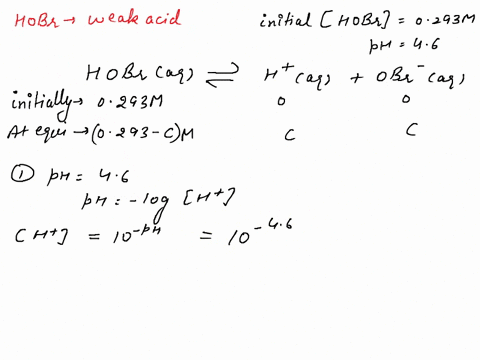 HOBr → weak acid
initial [HOBr] = 0.293M
pH = 4.6
HOBr (aq) ⇌ H⁺ (aq) + OBr⁻ (aq)
initially → 0.293M 0 0
At equi → (0.293-C)M C C
① pH = 4.6
pH = -log [H⁺]
[H⁺] = 10^-pH = 10^-4.6